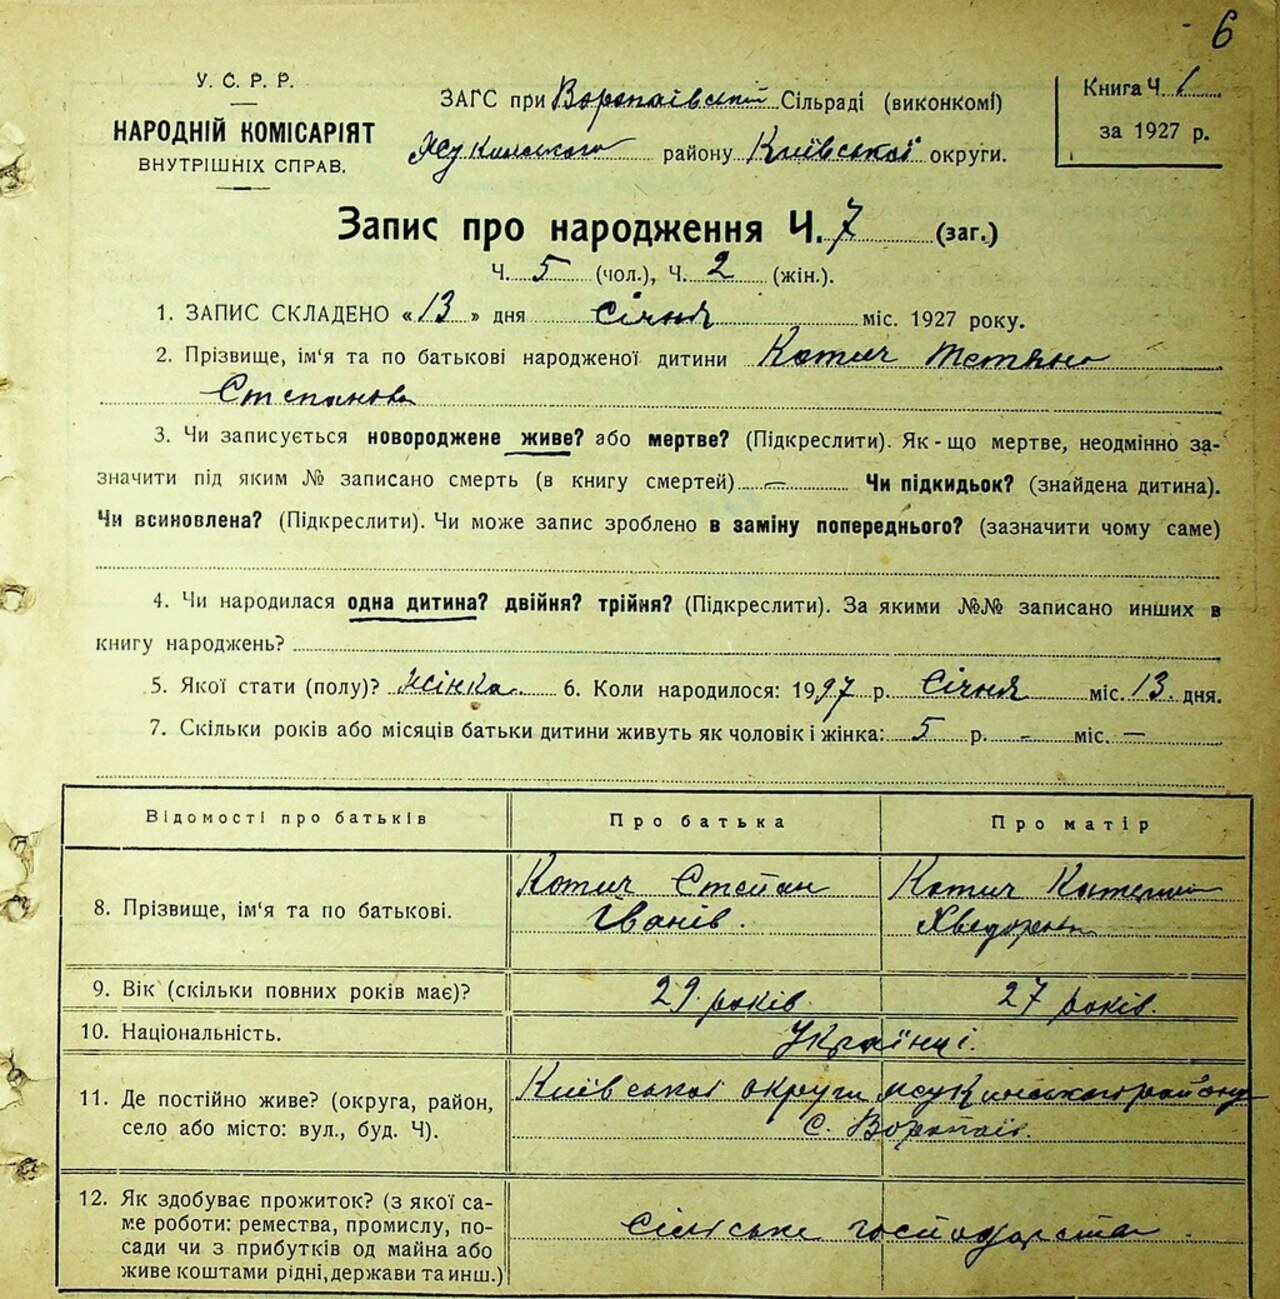 6
У. С. Р. Р.
НАРОДНІЙ КОМІСАРІЯТ
ВНУТРІШНІХ СПРАВ.
ЗАГС при Воропаївській Сільраді (виконкомі)
Жукинського району Київської округи.
Книга Ч. 1
за 1927 р.
Запис про народження Ч. 7 (заг.)
Ч. 5 (чол.), Ч. 2 (жін.).
1. ЗАПИС СКЛАДЕНО «13» дня Січня міс. 1927 року.
2. Прізвище, ім‘я та по батькові народженої дитини Котич Тетяна
Степанова
3. Чи записується новороджене живе? або мертве? (Підкреслити). Як-що мертве, неодмінно за-
значити під яким № записано смерть (в книгу смертей) — Чи підкидьок? (знайдена дитина).
Чи всиновлена? (Підкреслити). Чи може запис зроблено в заміну попереднього? (зазначити чому саме)
4. Чи народилася одна дитина? двійня? трійня? (Підкреслити). За якими №№ записано инших в
книгу народжень?
5. Якої стати (полу)? Жінка 6. Коли народилося: 1927 р. Січня міс. 13 дня.
7. Скільки років або місяців батьки дитини живуть як чоловік і жінка: 5 р. - міс. —
Відомості про батьків
Про батька
Про матір
8. Прізвище, ім‘я та по батькові.
Котич Степан
Іванів.
Котич Катерина
Хведорова
9. Вік (скільки повних років має)?
29 років
27 років.
10. Національність.
Українці.
11. Де постійно живе? (округа, район,
село або місто: вул., буд. Ч).
Київської округи Жукинського району
с. Воропаїв.
12. Як здобуває прожиток? (з якої са-
ме роботи: ремества, промислу, по-
сади чи з прибутків од майна або
живе коштами рідні, держави та инш.)
Сільське господарство.